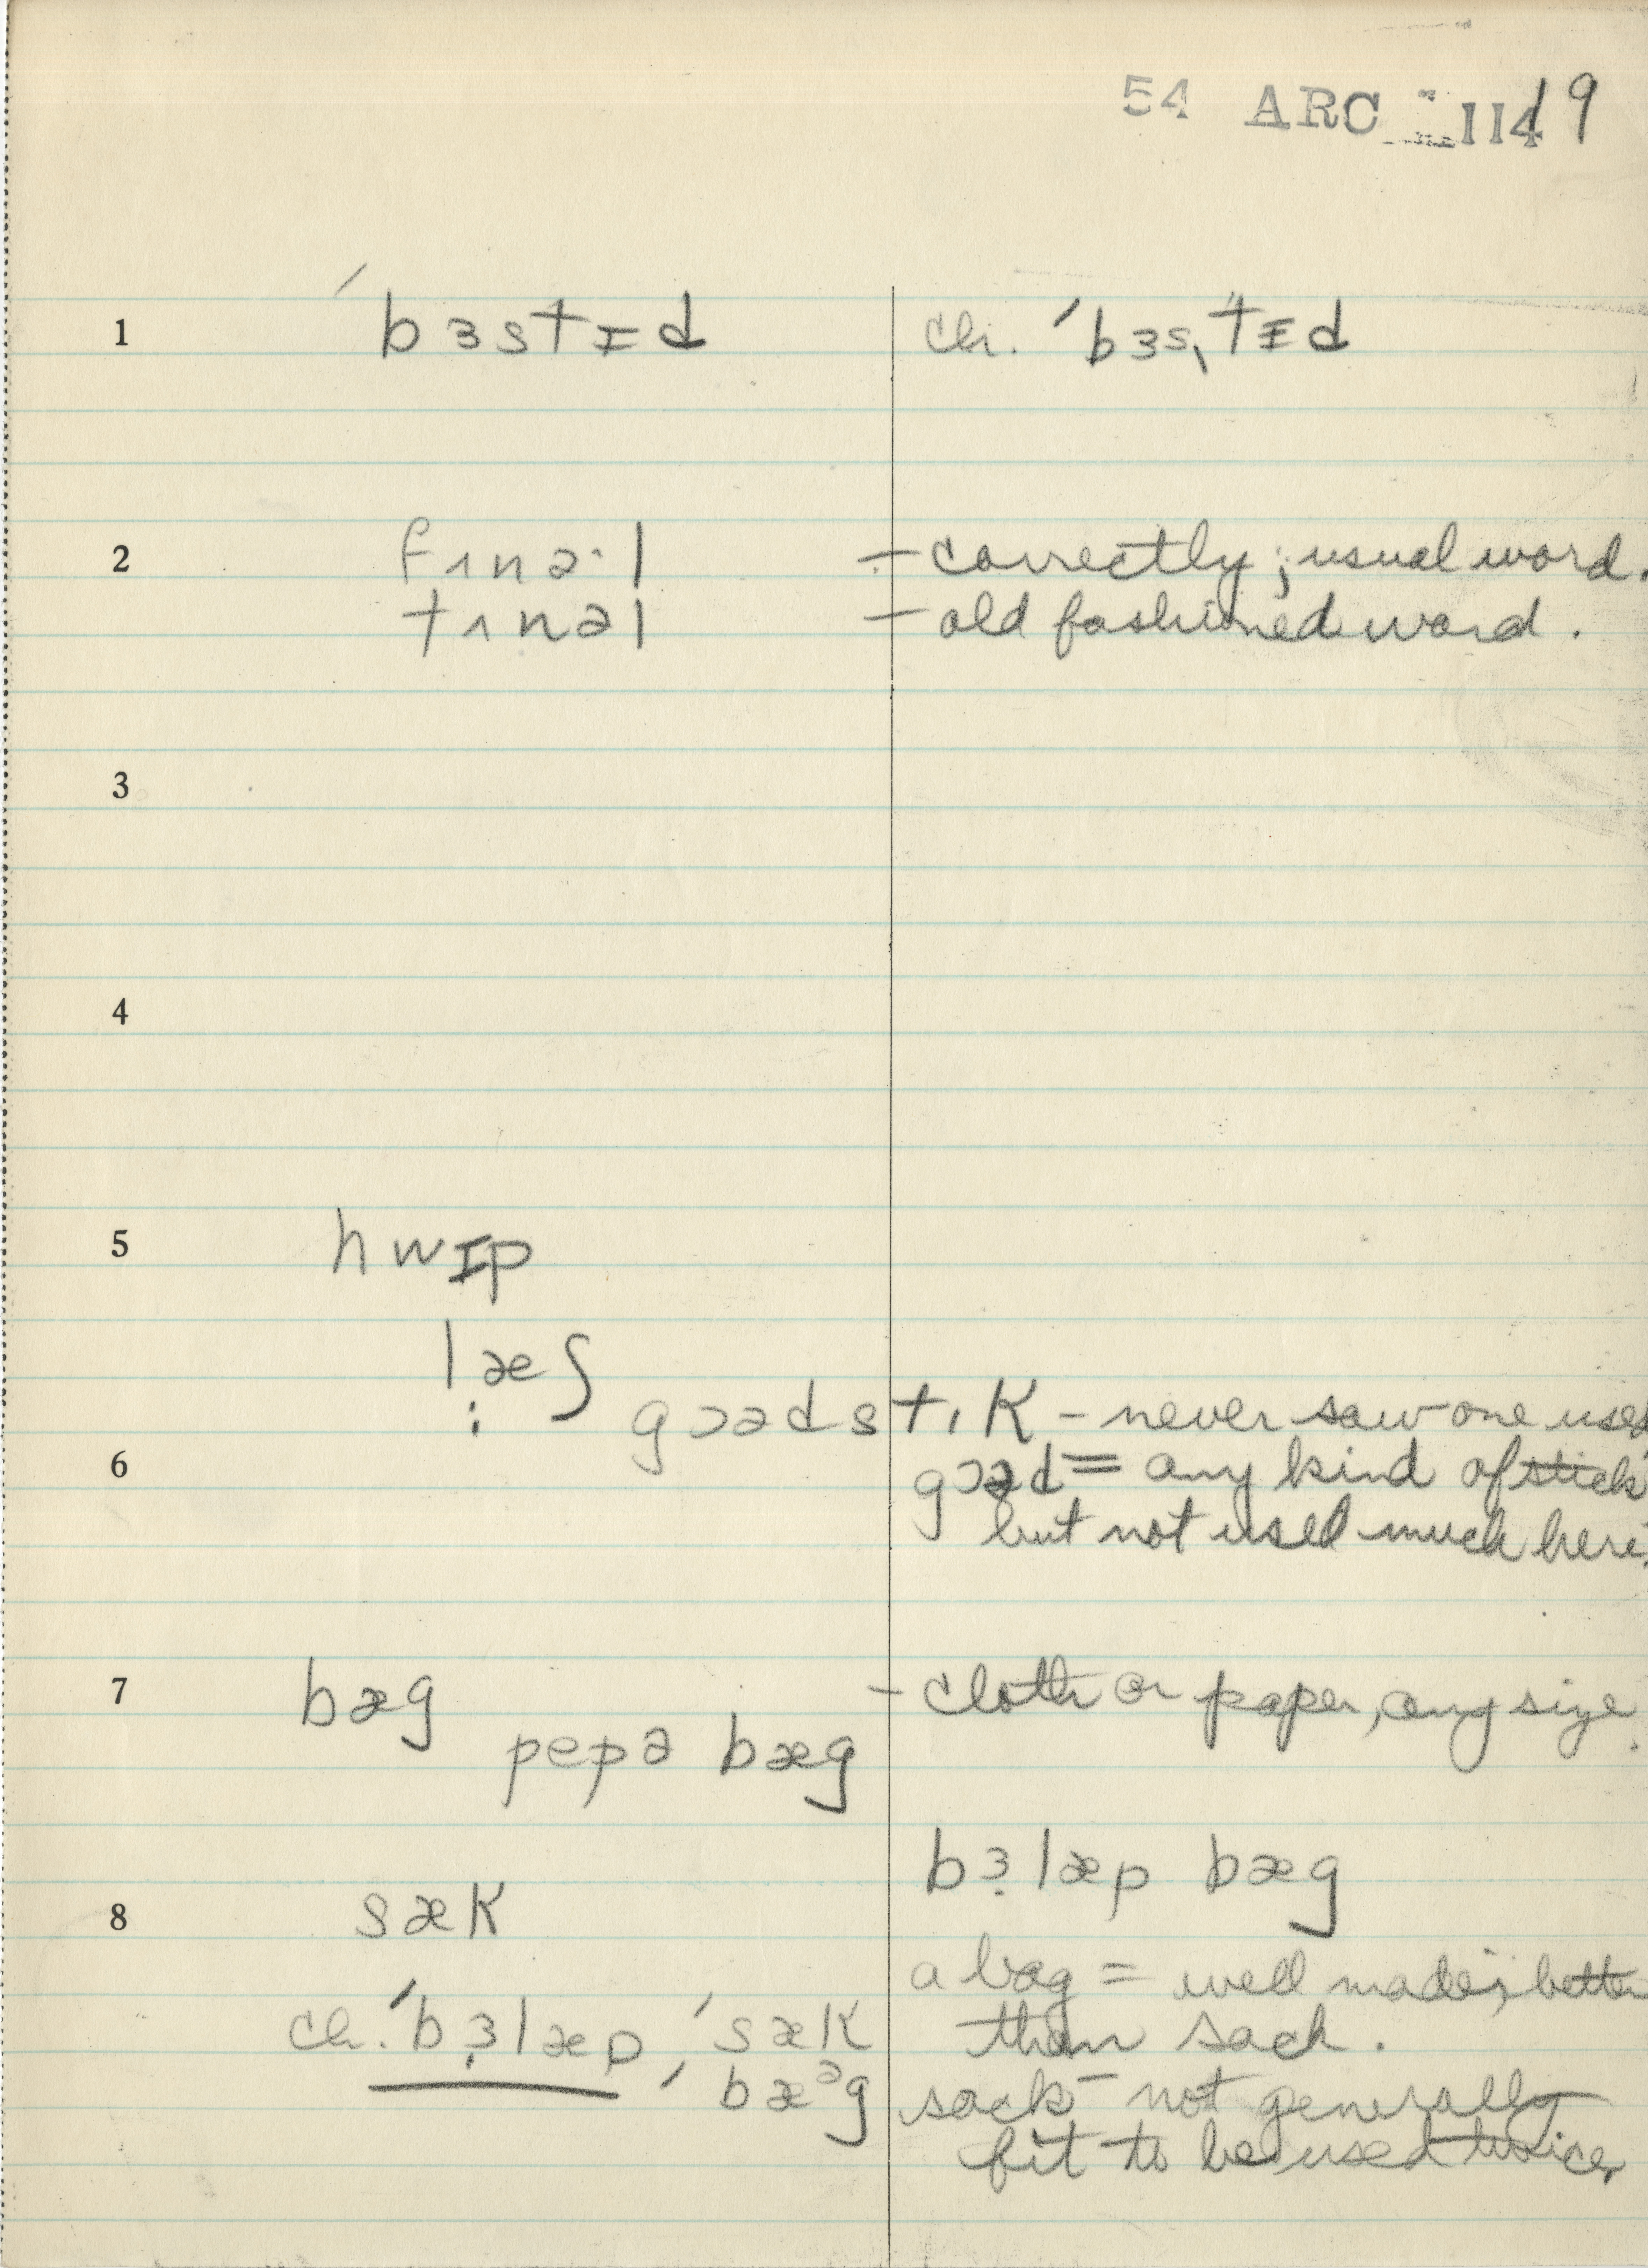 54 ARC 1149
1 ˈbɜstɪd ch. ˈbɜstɪd
2 fʌnəˑl – correctly; usual word.
tʌnəl – old fashioned word.
3
4
5 hwɪp
læʃ
goədstɪk – never saw one used
6 gɔəd = any kind of stick
but not used much here.
7 bæg – cloth or paper, any size.
pepə bæg
bɜlæp bæg
8 sæk
a bag = well made; better
ch. ˈbɜlæp, ˈsæk than sack.
ˈbæᵊg sack – not generally
fit to be used twice,